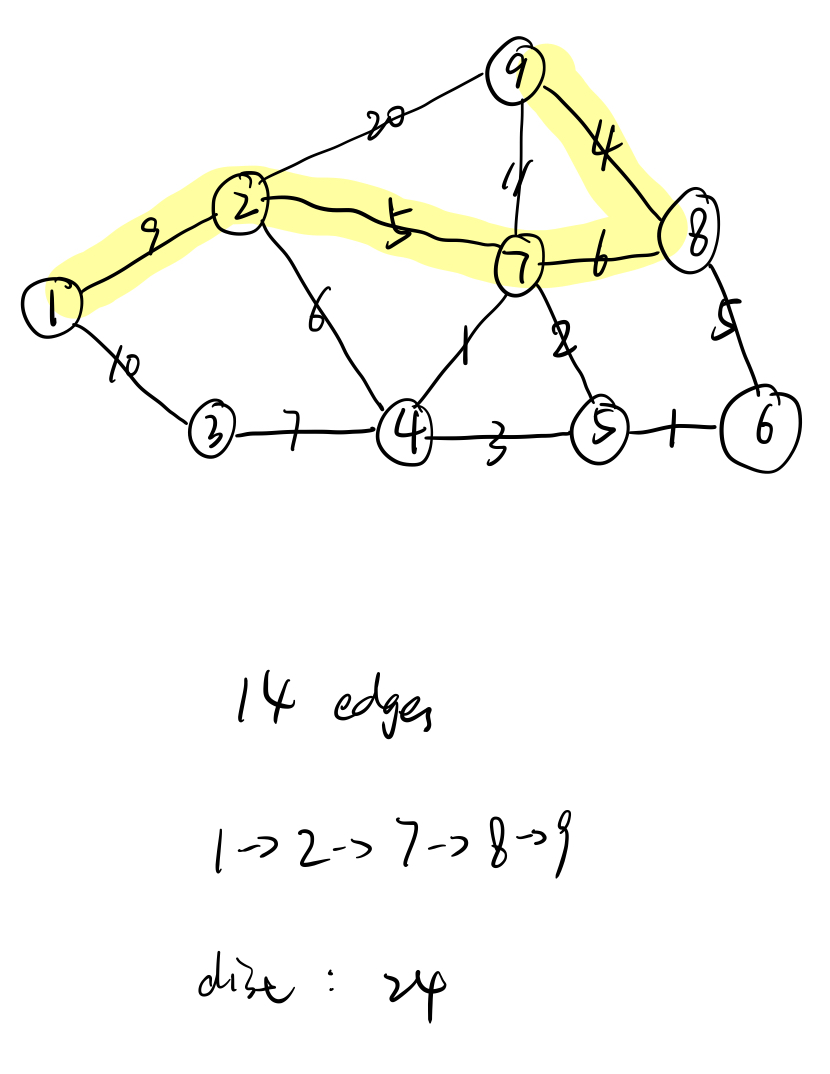 9
20
4
11
2
5
8
9
7
6
1
6
5
10
1
2
3
7
4
3
5
1
6
14 edges
1->2->7->8->9
dist : 24